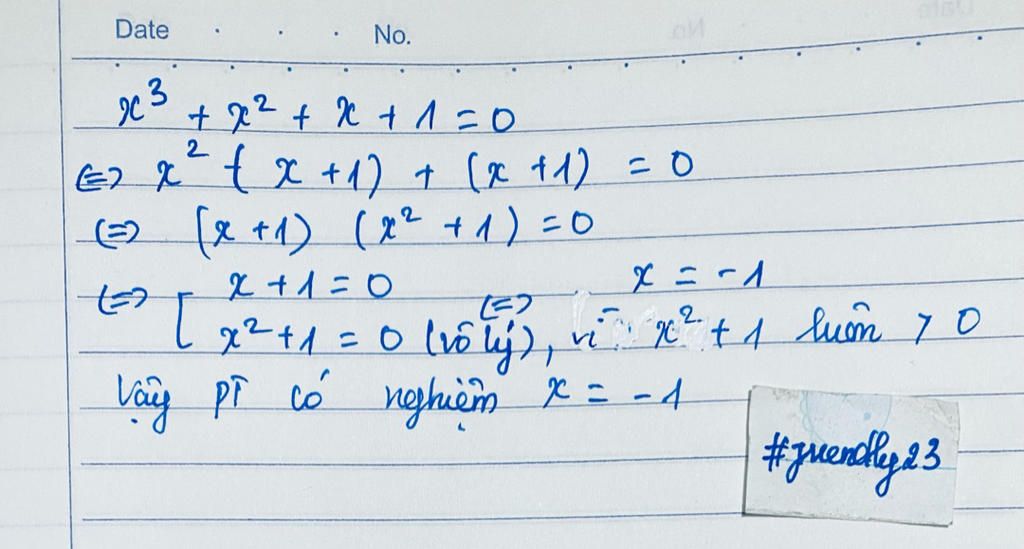 Date . . . No.
x³ + x² + x + 1 = 0
(=) x² ( x + 1) + (x + 1) = 0
(=) (x + 1) (x² + 1) = 0
(=) [ x + 1 = 0 (=) x = -1
x² + 1 = 0 (vô lý), vì x² + 1 luôn > 0
Vậy PT có nghiệm x = -1